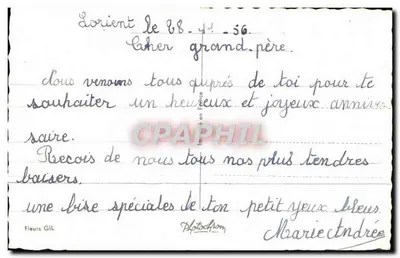 Lorient le 28 - 56
Cher grand-père.
Nous venons tous auprès de toi pour te
souhaiter un heureux et joyeux anniver
saire.
CPAPHIL
Recois de nous tous nos plus tendres
baisers.
une bise spéciales de ton petit yeux bleus
Fleurs GIL
Photochrom
Marie Andrée